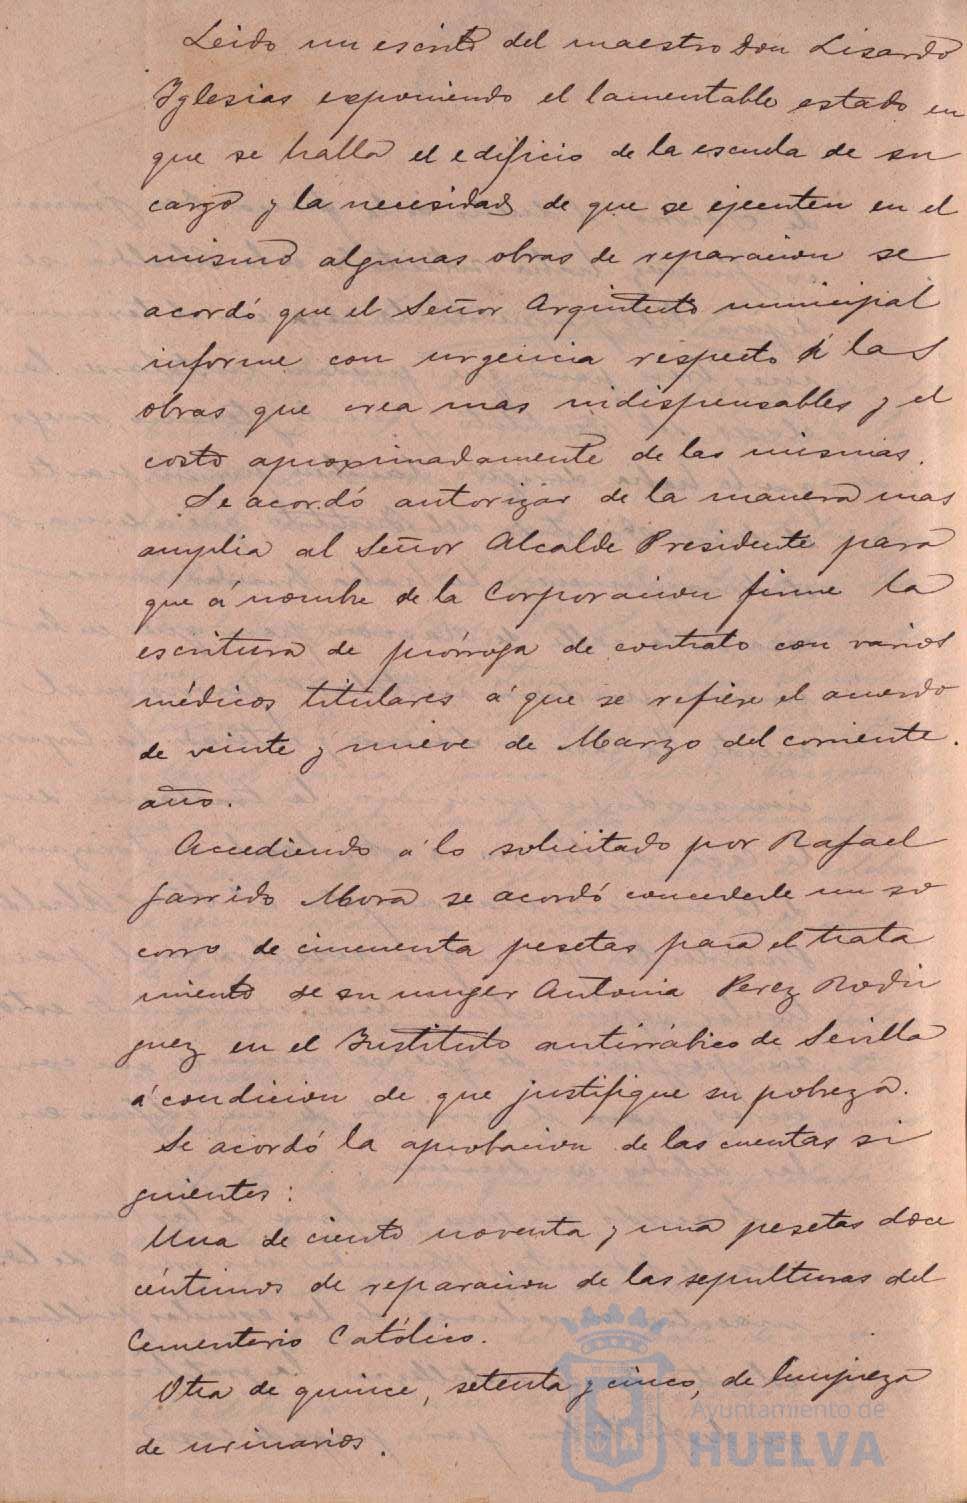 Leido un escrito del maestro Don Lisardo
Iglesias exponiendo el lamentable estado en
que se halla el edificio de la escuela de su
cargo y la necesidad de que se ejecuten en el
mismo algunas obras de reparacion se
acordó que el Señor Arquitecto municipal
informe con urgencia respecto á las
obras que crea mas indispensables y el
costo aproximadamente de las mismas.
Se acordó autorizar de la manera mas
amplia al Señor Alcalde Presidente para
que á nombre de la Corporacion firme la
escritura de prórroga de contrato con varios
médicos titulares á que se refiere el acuerdo
de veinte y nueve de Marzo del corriente
año.
Accediendo á lo solicitado por Rafael
Garrido Mora se acordó concederle un so
corro de cincuenta pesetas para el trata
miento de su muger Antonia Perez Rodri
guez en el Instituto antirrábico de Sevilla
á condicion de que justifique su pobreza.
Se acordó la aprobacion de las cuentas si
guientes:
Una de ciento noventa y una pesetas doce
céntimos de reparacion de las sepulturas del
Cementerio Católico.
Otra de quince, setenta y cinco, de limpieza
de urinarios.
Ayuntamiento de
HUELVA